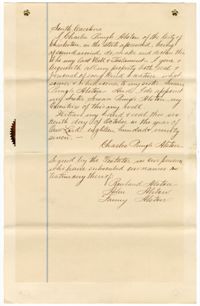 South Carolina
I Charles Pringle Alston of the City of
Charleston in the State aforesaid, being
of sound mind do make and declare this
to be my last Will & Testament. I give &
bequeath all my property both real &
personal of every kind & nature wher-
ever &
Pringle Alston. And I do appoint
my Sister Susan Pringle Alston, my
Executrix of this my will.
Witness my hand & seal this
ninth day of October in the year of
our Lord eighteen hundred & ninety
seven —
Charles Pringle Alston
Signed by the Testator in our presence
who have subscribed our names as
testimony thereof
Rowland Alston
John Alston
Fanny Alston